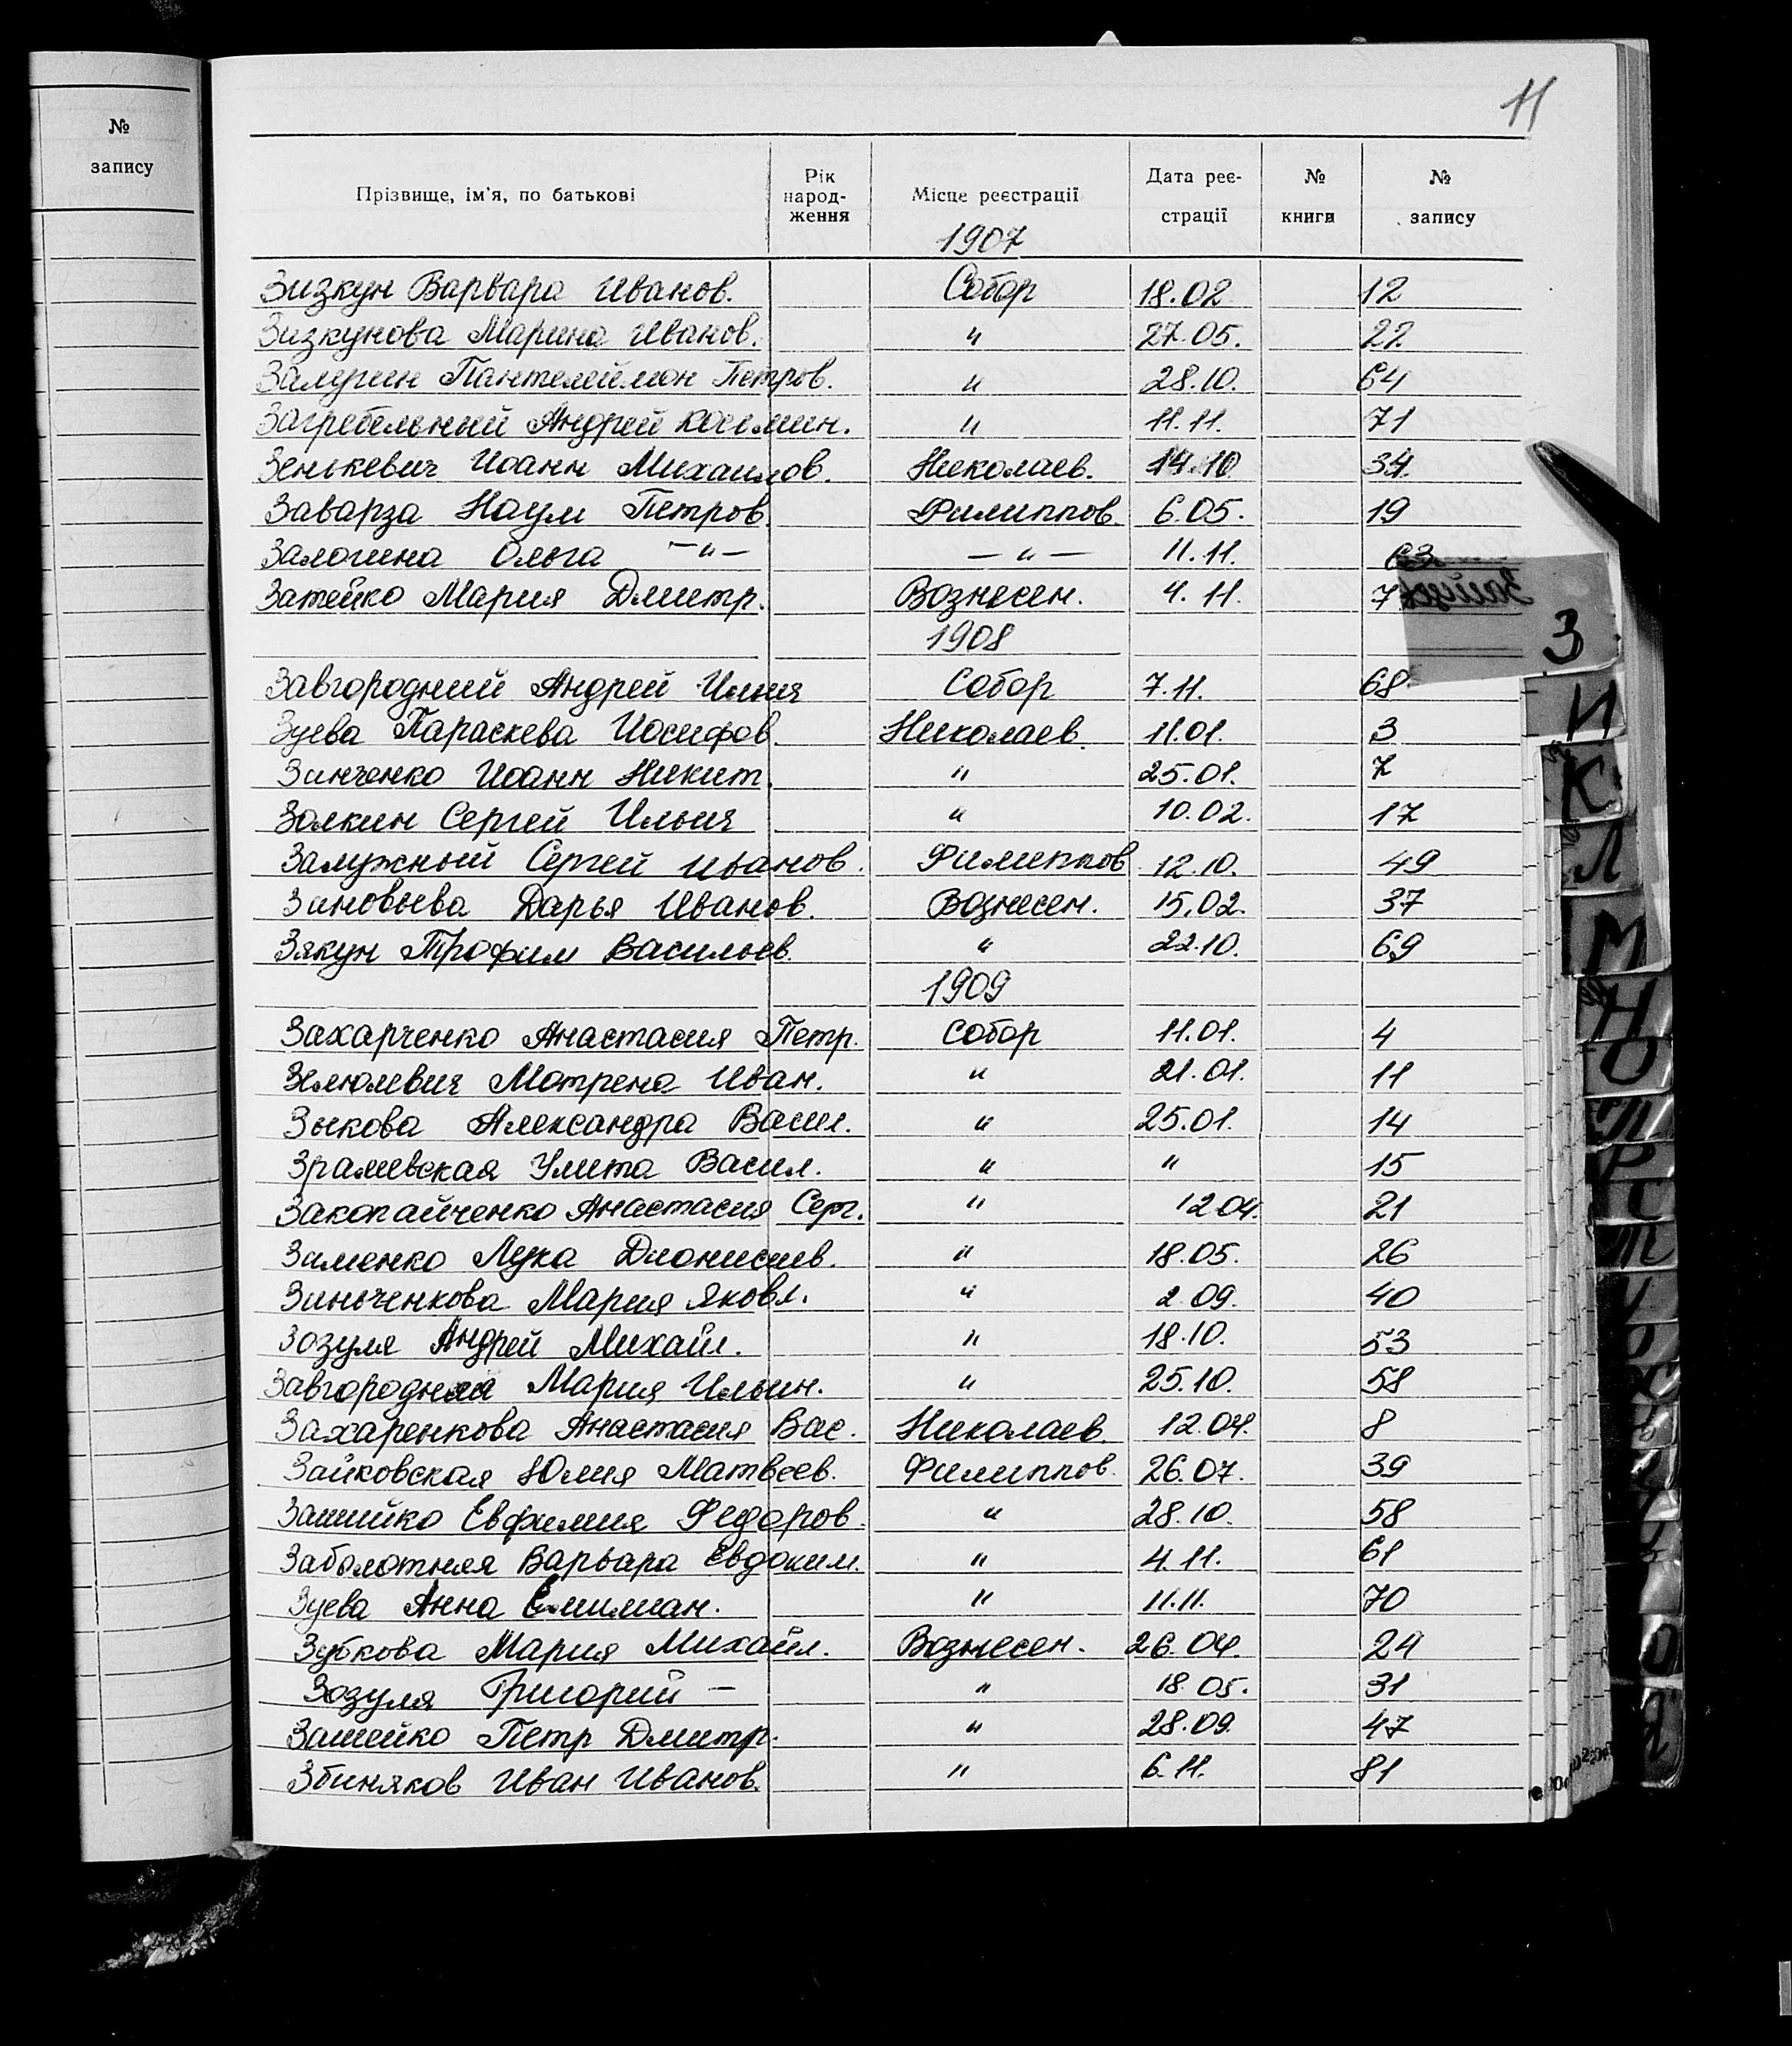 №
запису
11
Прізвище, ім'я, по батькові Рік народ-ження Місце реєстрації Дата реє-страції № книги № запису
1907
Зизкун Варвара Иванов. Собор 18.02 12
Зизкунова Марина Иванов. " 27.05. 22
Пантелеймон Петров. " 28.10. 64
Загребельный Андрей Косьмин. " 11.11. 71
Зенькевич Иоанн Михаилов. Николаев. 14.10 34
Заварза Наум Петров. Филиппов. 6.05. 19
Залогина Ольга -"- -"- 11.11. 63
Затейко Мария Дмитр. Вознесен. 4.11. 7
1908
Завгородний Андрей Ильич Собор 7.11. 68
Зуева Параскева Иосифов. Николаев. 11.01. 3
Зинченко Иоанн Никит. " 25.01. 7
Золкин Сергей Ильич " 10.02. 17
Залужный Сергей Иванов. Филиппов 12.10. 49
Зиновьева Дарья Иванов. Вознесен. 15.02. 37
Зякун Трофим Васильев. " 22.10. 69
1909
Захарченко Анастасия Петр. Собор 11.01. 4
Мотрена Иван. " 21.01. 11
Зыкова Александра Васил. " 25.01. 14
Зрамевская Улита Васил. " " 15
Закопайченко Анастасия Серг. " 12 04. 21
Зименко Лука Дионисиев. " 18.05. 26
Зинченкова Мария Яковл. " 2.09. 40
Зозуля Андрей Михайл. " 18.10. 53
Завгородняя Мария Ильин. " 25.10. 58
Захаренкова Анастасия Вас. Николаев. 12.04. 8
Зайковская Юлия Матвеев. Филиппов. 26.07. 39
Евфимия Федоров. " 28.10. 58
Заболотняя Варвара Евдоким. " 4.11. 61
Зуева Анна Емилиан. " 11.11. 70
Зубкова Мария Михайл. Вознесен. 26.04. 24
Зозуля Григорий - " 18 05. 31
Зашейко Петр Дмитр. " 28.09. 47
Збиняков Иван Иванов. " 6.11. 81
З
И
К
Л
М
Н
О
П
Р
С
Т